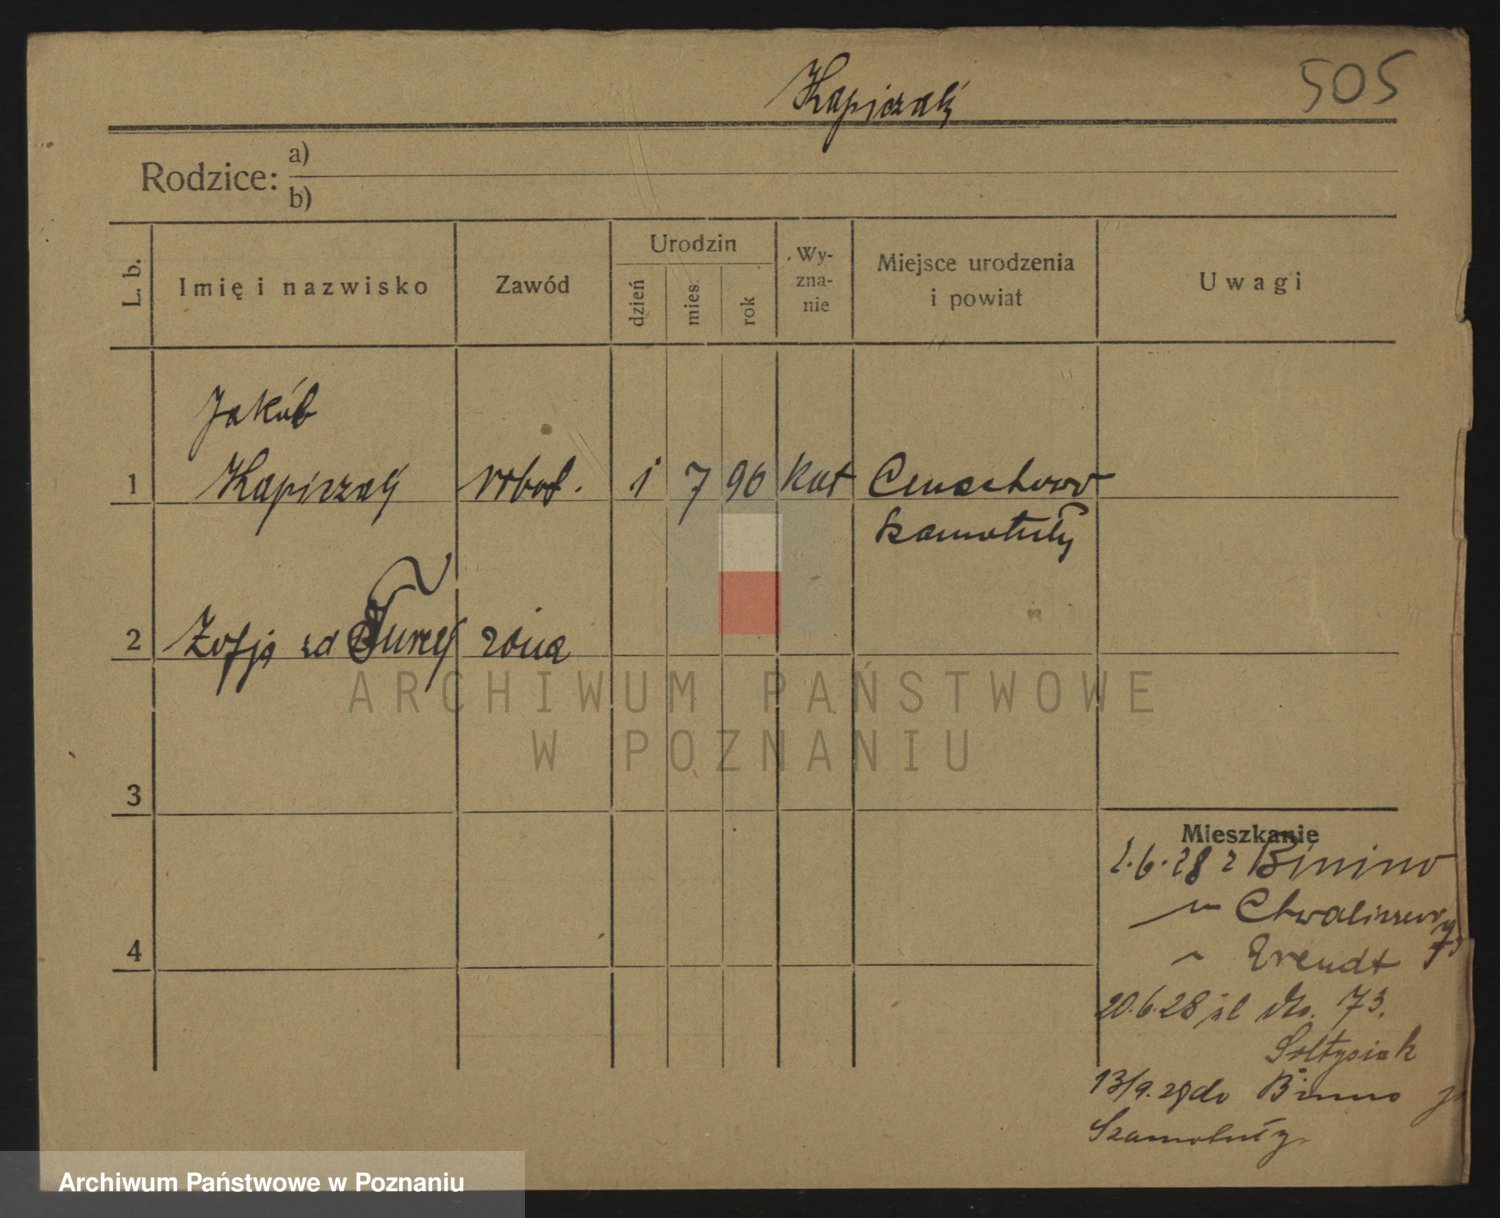 505
Rodzice: a)
b)
L. b.
Imię i nazwisko
Zawód
Urodzin
dzień
mies.
rok
Wy-
zna-
nie
Miejsce urodzenia
i powiat
Uwagi
Jakób
1 robot. 1 7 96 kat
Szamotuły
2 Zofja żona
3
4
ARCHIWUM PAŃSTWOWE
W POZNANIU
Mieszkanie
2.6.28 z Binino
Chwaliszewo 73
20.6.28 73.
Sołtysiak
13/9.29 do Binino
Szamotuły
Archiwum Państwowe w Poznaniu